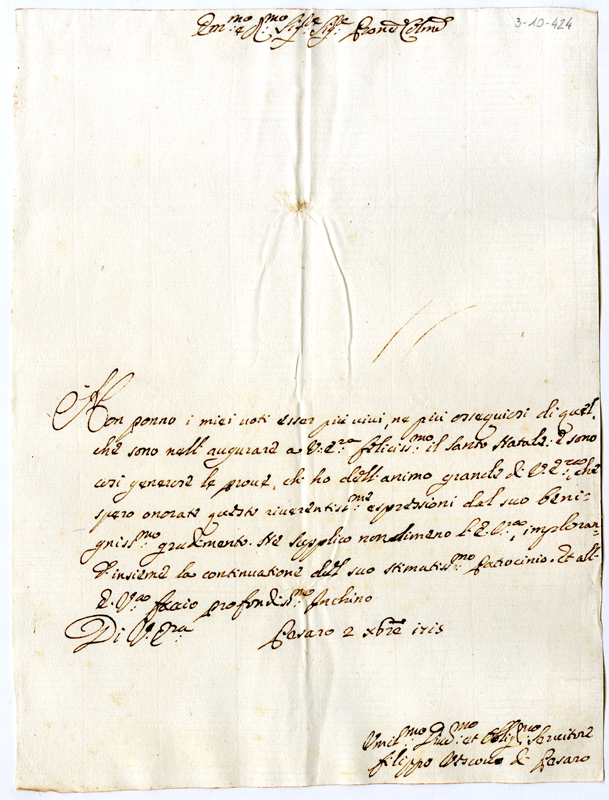 Em.mo e R.mo Sig.re Sig.re Pron'e Col'mo
3-10-424
Non ponno i miei voti esser più vivi, ne più ossequiosi di quel,
che sono nell'augurare a V: E.za feliciss.mo il Santo Natale: E sono
così generose le prove, ch'ho dell'animo grande di V: E.za, che
spero onorate queste riverentiss.me espressioni dal suo beni-
gniss.mo gradimento. Ne supplico nondimeno l'E. V.ra, imploran-
d'insieme la continuatione del suo stimatiss.mo Patrocinio. Et all'
E. V.ra faccio profondiss.mo Inchino
Di V: E.za Pesaro 2 xbre 1715
Umil.mo Dev.mo et Obblig.mo Servitore
Filippo Vescovo di Pesaro